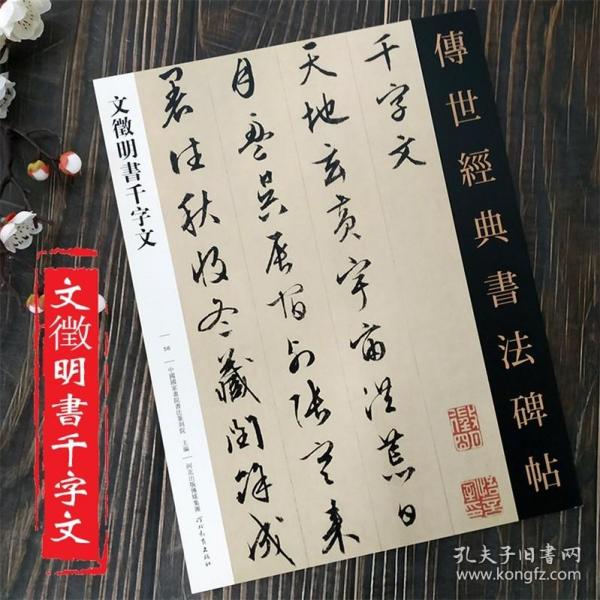 傳世經典書法碑帖
千字文
天地玄黄宇宙洪荒日
月盈昃辰宿列張寒来
暑往秋收冬藏閏餘成
文徵明書千字文
56
中國國家畫院書法篆刻院 主編
河北出版傳媒集團
河北教育出版社
文徵明書千字文
孔夫子旧书网
www.kongfz.com